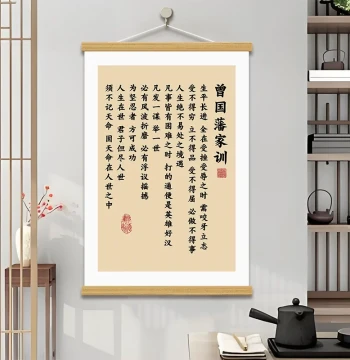 曾国藩家训
生平长进 全在受挫受辱之时 需咬牙立志
受不得穷 立不得品 受不得屈 必做不得事
人生绝不易处之境遇
凡事皆有困难之时 打的通便是英雄好汉
凡发一谋 举一世
必有风波折磨 必有浮议摇撼
为坚忍者 方可成功
人生在世 君子但尽人世
须不记天命 固天命在人世之中